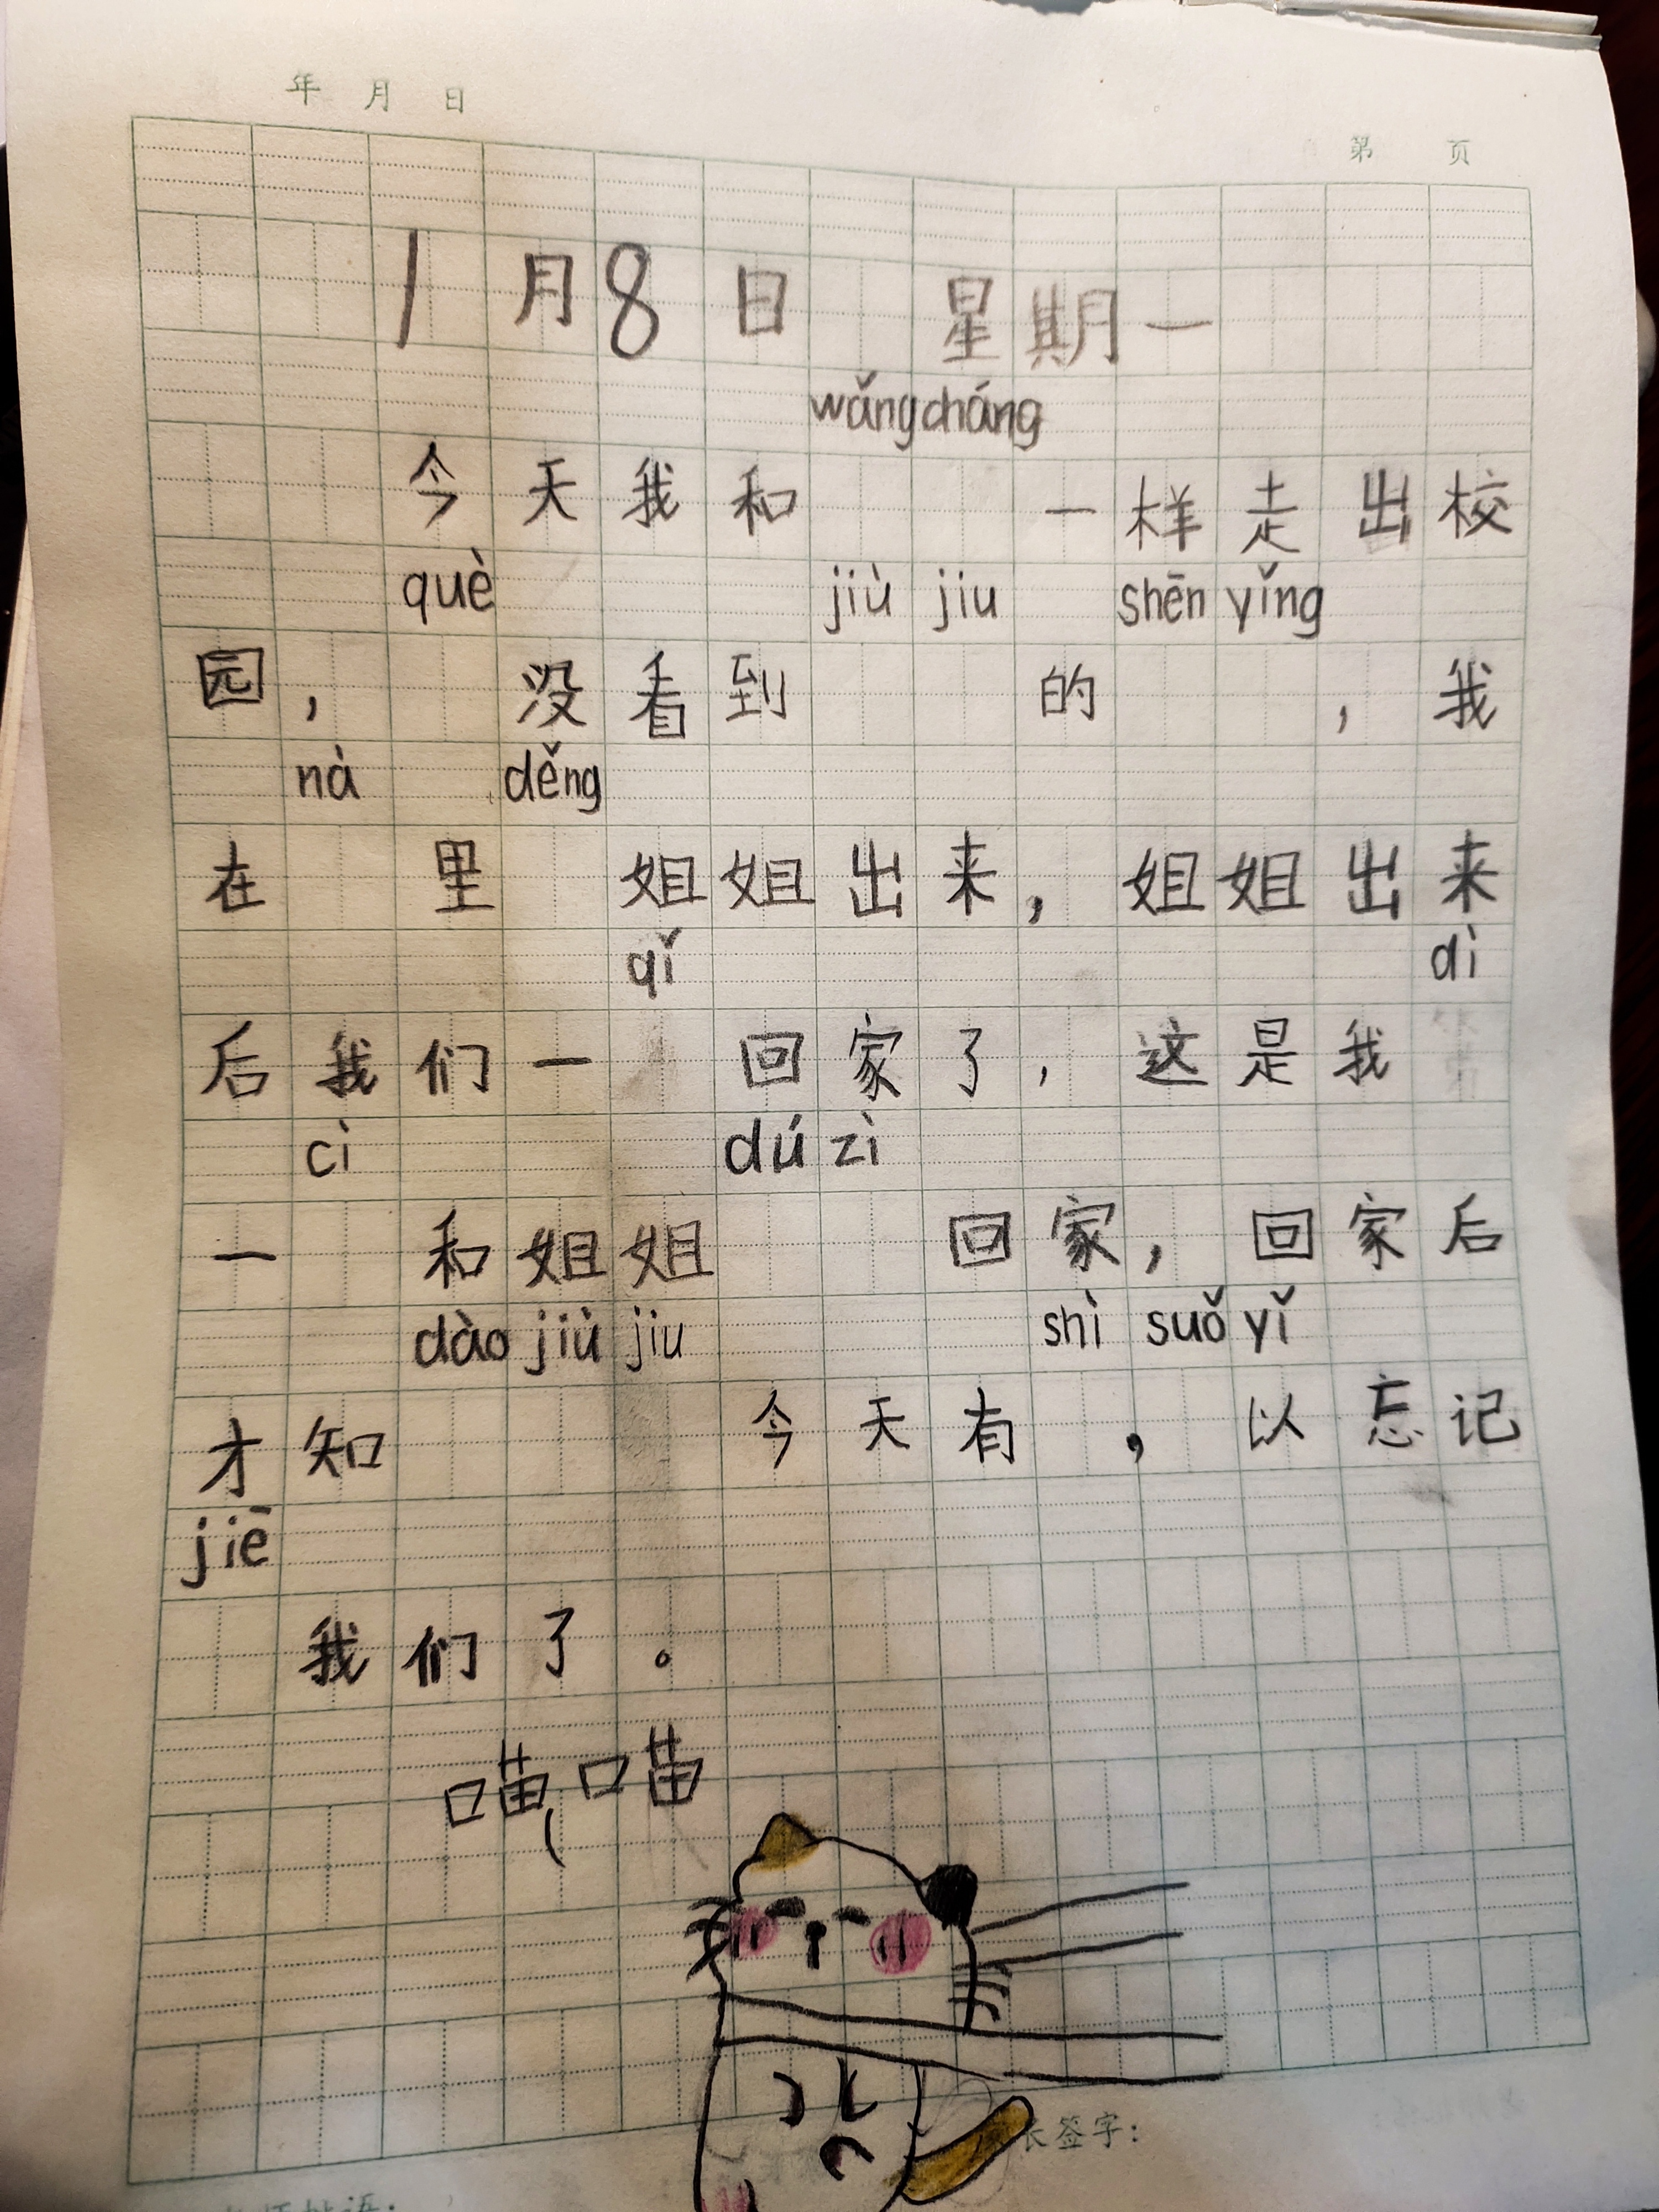 年 月 日
第 页
1月8日 星期一
wǎngcháng
今天我和 一样走出校
què jiù jiu shēn yǐng
园， 没看到 的 ，我
nà děng
在 里 姐姐出来，姐姐出来
qǐ dì
后我们一 回家了，这是我
cì dú zì
一 和姐姐 回家，回家后
dào jiù jiu shì suǒ yǐ
才知 今天有 ， 以忘记
jiē
我们了。
喵喵
长签字：